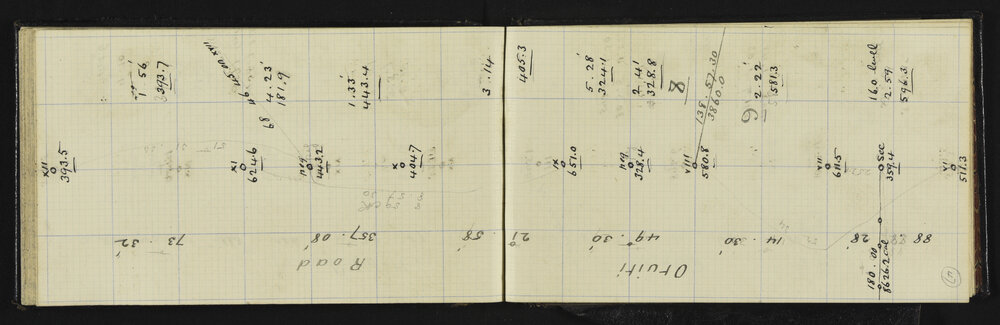 XII
393.5
1 56'
393.7
73 . 32'
116 . 45 . 00 XVII
4 . 23'
181.9
68
XI
624.6
peg
443.2
1 . 33'
443.4
357 . 08'
Road
X
404.7
3 . 14
58'
405.3
21
IX
651.0
5 . 28'
324.1
2 41'
328.8
8
peg
328.4
49 . 30'
Otuiti
138 . 57 . 30
3860.0
VIII
580.8
30'
9
2 . 22'
581.3
14
VII
611.5
28'
160 level
2.59
596.3
Sec
359.4
180 . 00
8626.2 cal
VI
511.3
88